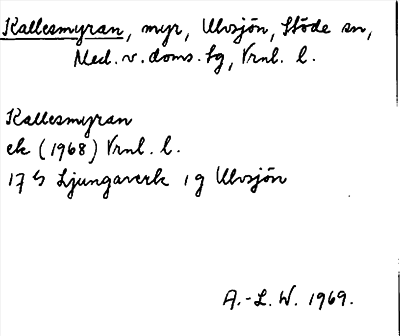 Kallesmyran, myr, Ulvsjön, Stöde sn,
Med. v. doms. tg, Vrnl. l.
Kallesmyran
ek (1968) Vrnl. l.
17 G Ljungaverk 1 g Ulvsjön
A.-L. W. 1969.